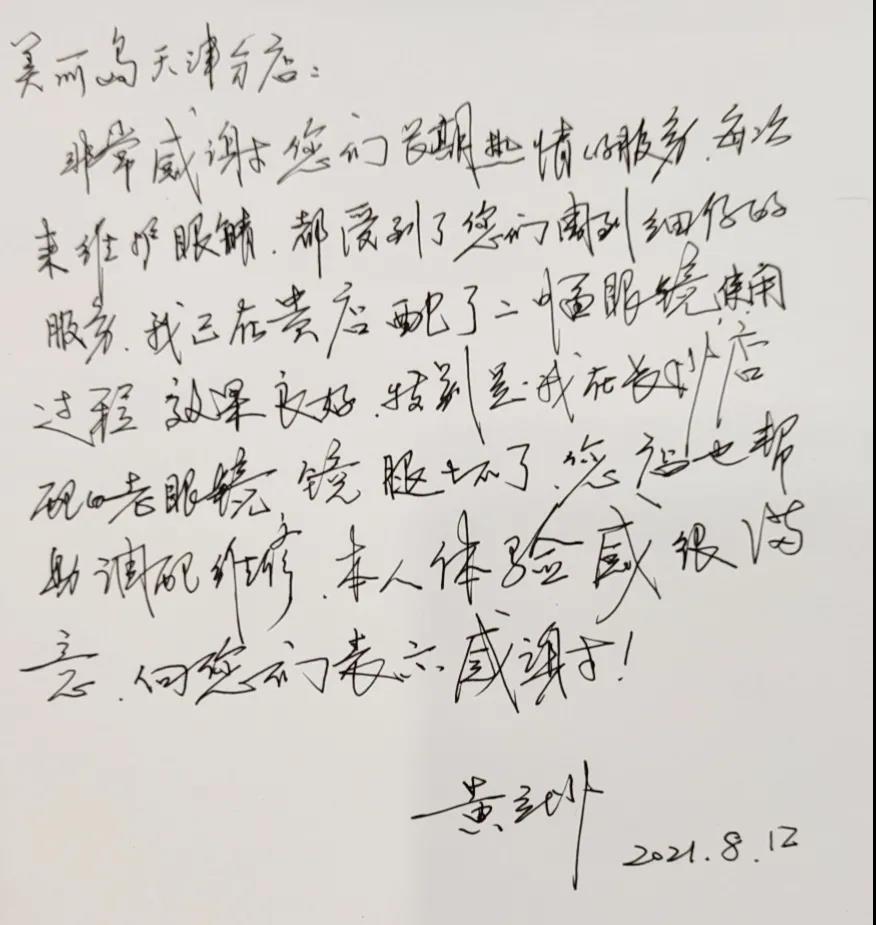 美丽岛天津分店：
非常感谢您们长期热情的服务，每次
来维护眼睛，都受到了您们周到细仔的
服务，我已在贵店配了二幅眼镜使用
过程效果良好，特别是我在长沙店
配的老眼镜镜腿坏了，您店也帮
助调配维修，本人体验感很满
意，向您们表示感谢！
黄
2021.8.12